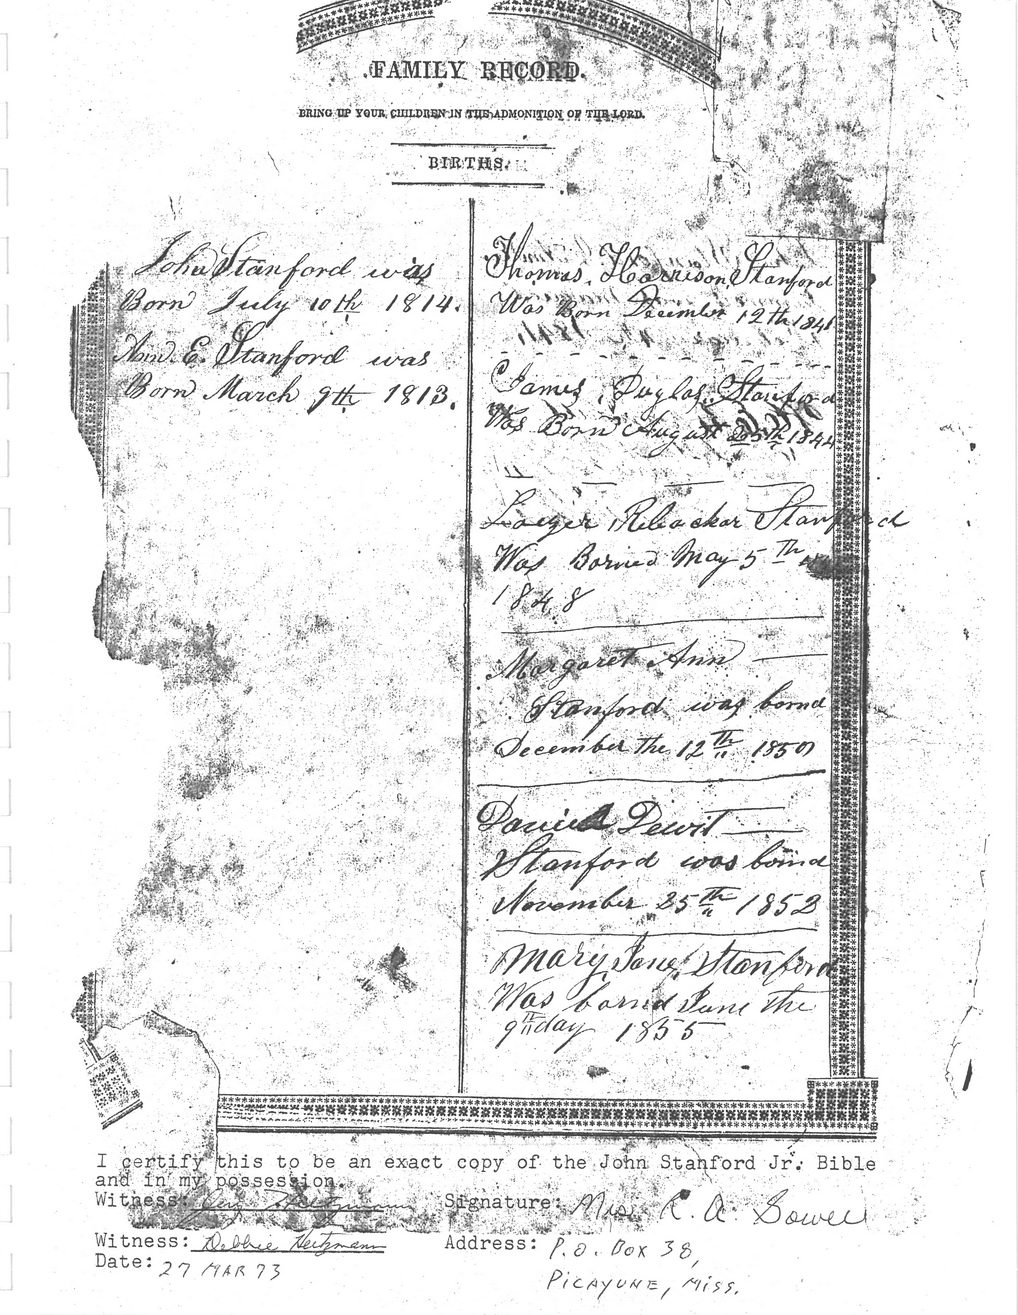 FAMILY RECORD.
BRING UP YOUR CHILDREN IN THE ADMONITION OF THE LORD.
BIRTHS.
John Stanford was
Born July 10th 1814.
Ann. E. Stanford was
Born March 9th 1813.
Thomas. Harrison Stanford
Was Born December 12th 1841
James, Duglas. Stanford
Was Born August 25th 1844
Stanford
Was Borned May 5 Th
1848
Margaret Ann
Stanford was bornd
December the 12th
Daniel Dewit
Stanford was bornd
November 25th 1852
Mary, Jane, Stanford
Was bornd June the
9th day 1855
I certify this to be an exact copy of the John Stanford Jr. Bible
and in my possession.
Witness: Signature: Mrs. R. A. Sowell
Witness: Debbie Heitzmann Address: P.O. Box 38,
Date: 27 MAR 73
PICAYUNE, MISS.